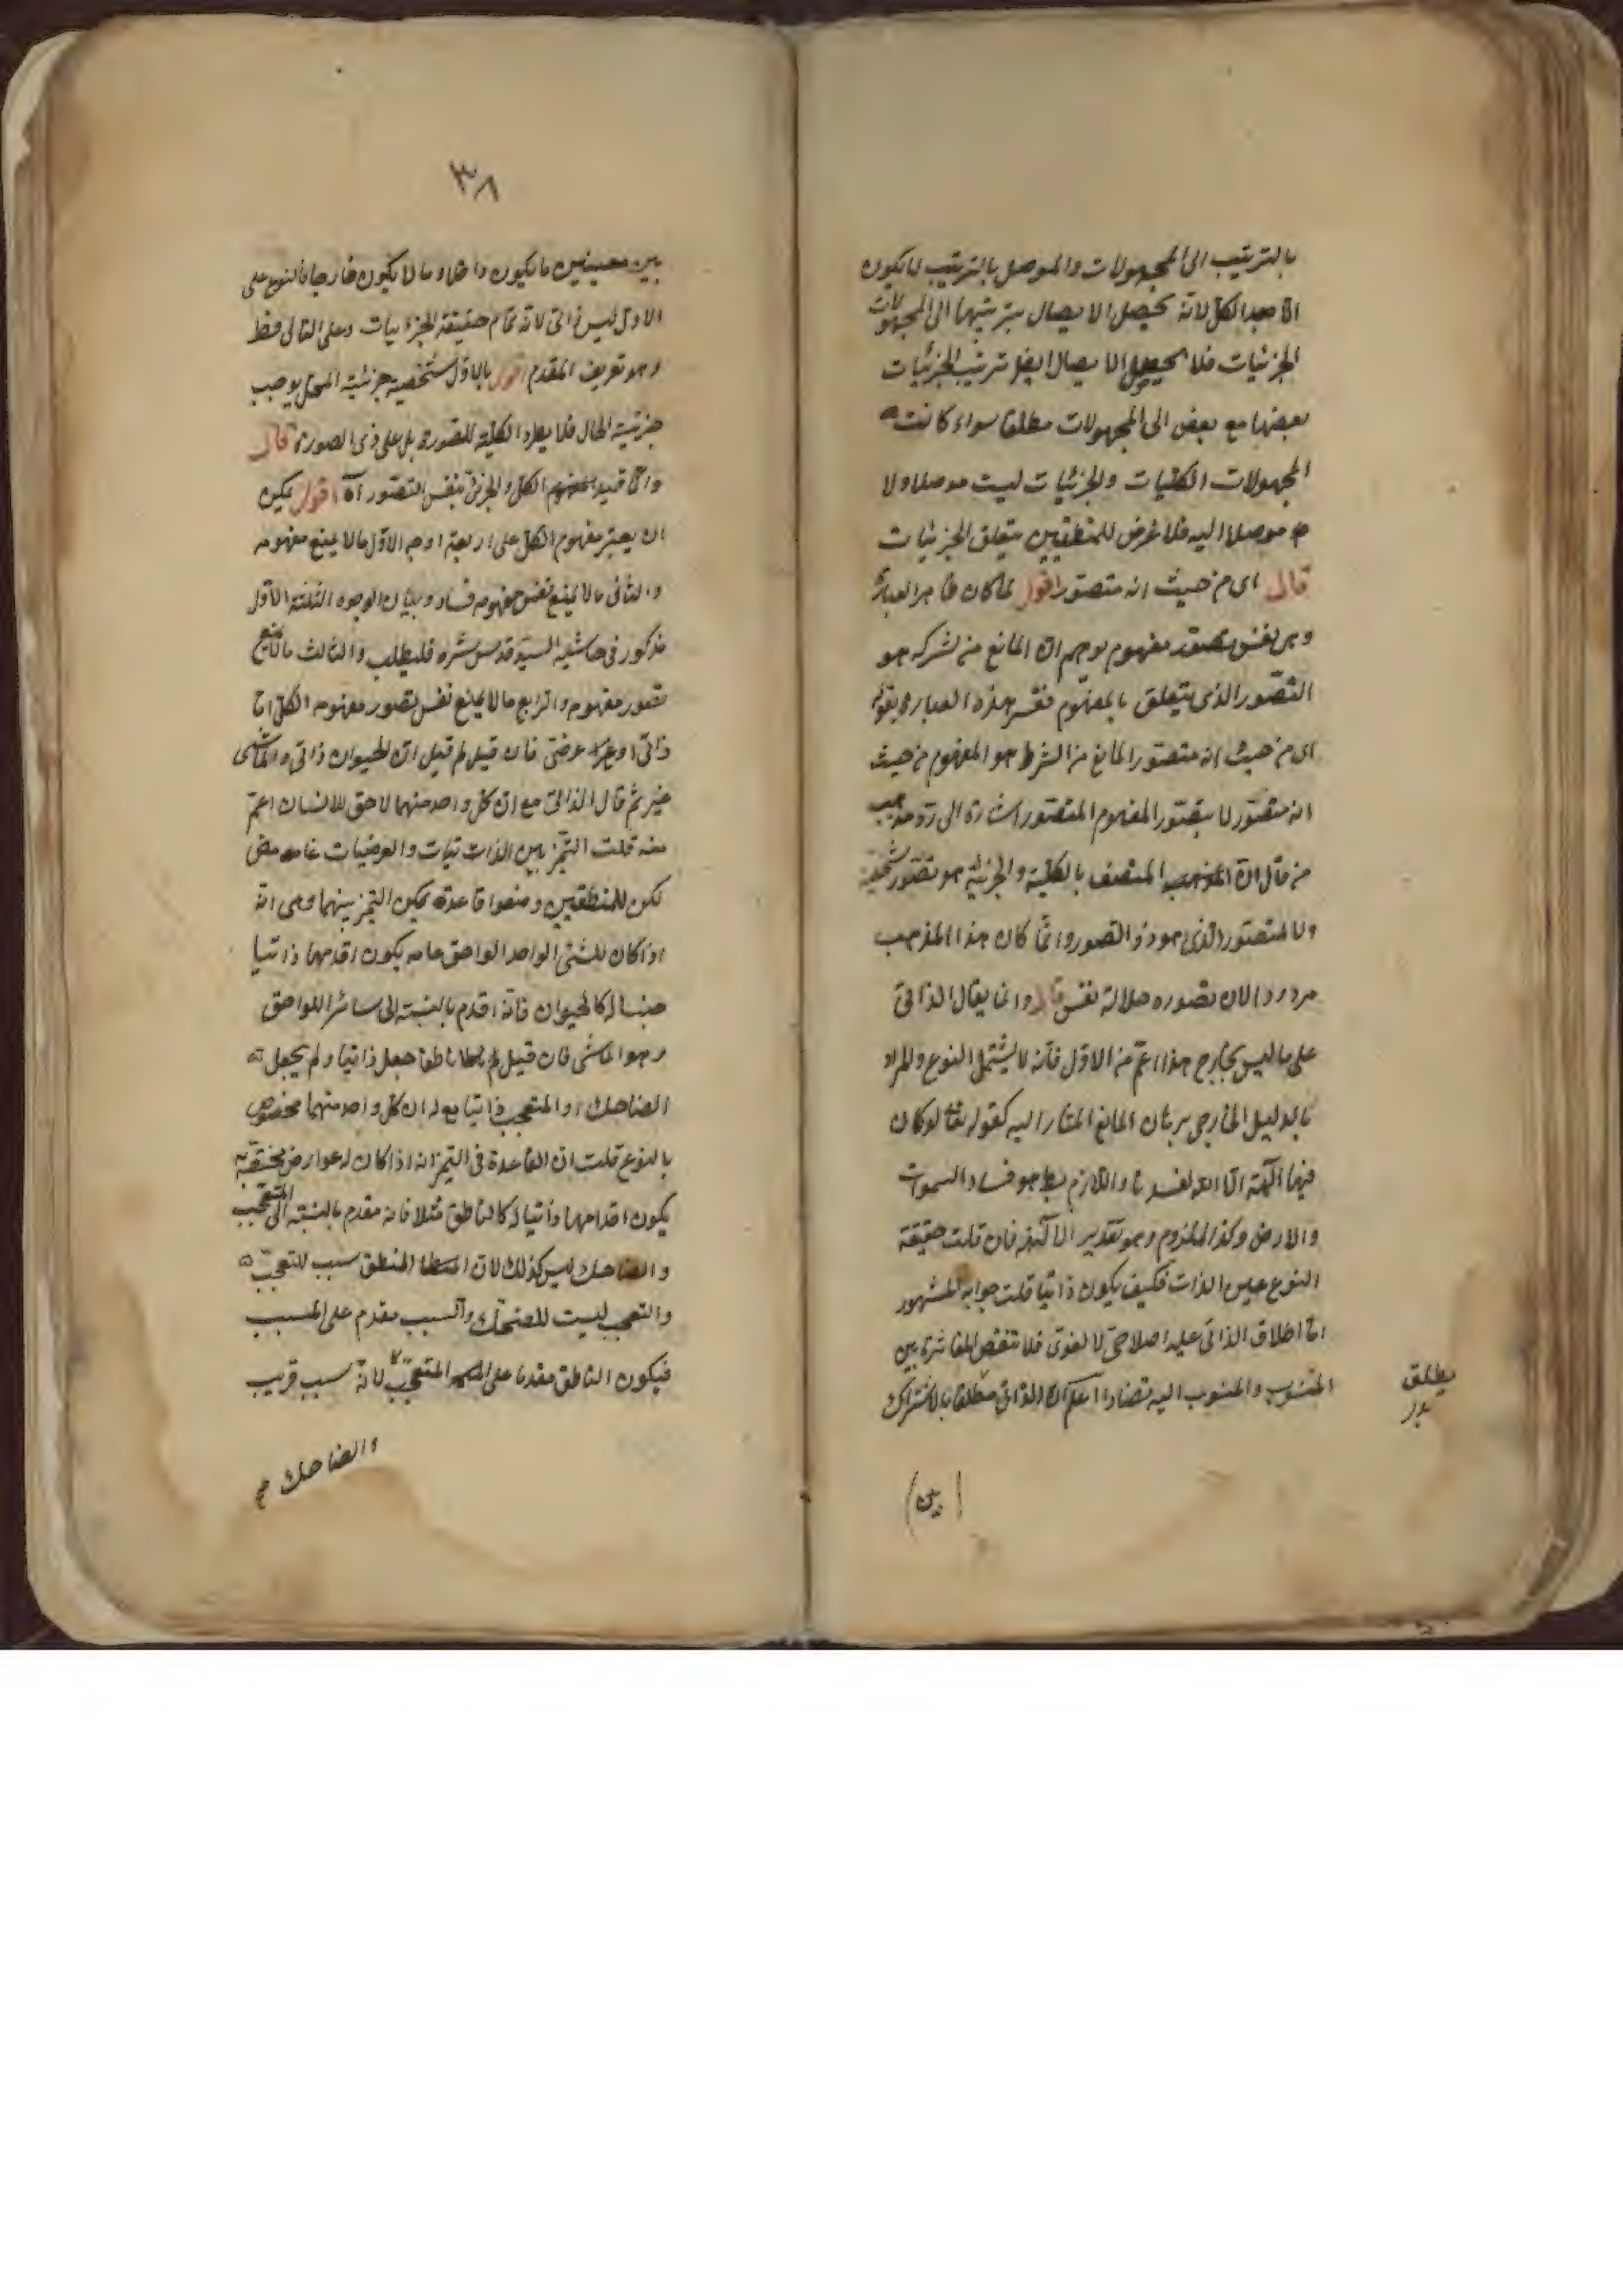 بالترتيب الى المجهولات والموصل بالترتيب لا يكون
الا الكلى لانه يحصل الايصال بترتيبها الى المجهولات
الجزئيات فلا يحصل الايصال ترتيب الجزئيات
بعضها مع بعض الى المجهولات مطلقا سواء كانت
المجهولات الكليات والجزئيات ليست موصلا ولا
موصلا اليه فلا غرض للمنطقيين يتعلق الجزئيات
قال اى من حيث انه متصور اقول لما كان ظاهر العبارة
وهى نفس تصور مفهوم يوهم ان المانع من الشركه هو
التصور الذى يتعلق بالمفهوم ففسر هذه العبارة بقوله
اى من حيث انه متصور المانع من الشرط هو المفهوم من حيث
انه متصور لا بتصور المفهوم المتصور اشارة الى رد مذهب
من قال ان المتصف بالكلية والجزئية هو تصور
ولا المتصور الذى هو ذو التصور وانما كان هذا المذهب
مردودا لان تصوره نفس قال وانما يقال الذاتى
على ما ليس بخارج هذا اعم من الاول فانه لا يشتمل النوع والمراد
بالدليل الخارجى برهان المانع المشار اليه كقوله تعالى لو كان
فيهما آلهة الا الله لفسدتا واللازم هو فساد السموات
والارض وكذا الملزوم وهو تقدير الآلهة فان قلت حقيقة
النوع عين الذات فكيف يكون ذاتيا قلت جوابه المشهور
ان اطلاق الذاتى عليه اصلاحى لا لغوى فلا تنقض المغائرة بين
المنسوب والمنسوب اليه اعلم ان الذاتى مطلقا بالاشتراك
يطلق
بين
٣٨
بين معنيين ما يكون داخلا وما لا يكون خارجا فالنوع على
الاول ليس ذاتى لانه تمام حقيقة الجزئيات وعلى الثانى
وهو تعريف المقدم اقول بالاول شخصية جزئية المحل يوجب
جزئية الحال فلا يطرد الكلية للصورة بل على ذى الصورة قال
وانما قيد الكلى والجزئى بنفس التصور آه اقول يمكن
ان يعتبر مفهوم الكلى على اربعة اوجه الاول ما لا يمنع مفهومه
والثانى ما لا يمنع نفس مفهومه فساد وبيان الوجوه الثلثة الاول
مذكور فى حاشية السيد قدس سره فليطلب والثالث ما لا يمنع
تصور مفهومه والرابع ما لا يمنع نفس تصور مفهومه الكلى اما
ذاتى او عرضى فان قيل لم قيل ان الحيوان ذاتى والماشى
غير ثم قال الذاتى مع ان كل واحد منهما لاحق للانسان اعم
منه قلت التميز بين الذاتيات والعرضيات غامض
لكن للمنطقيين وضعوا قاعدة يمكن التميز بينهما وهى انه
اذا كان للشئ الواحد لواحق عامه يكون اقدمها ذاتيا
جنسا له كالحيوان فانه اقدم بالنسبة الى سائر اللواحق
وهو الماشى فان قيل لم ناطقا جعل ذاتيا ولم يجعل
الضاحك او المتعجب ذاتيا مع ان كل واحد منهما مخصوص
بالنوع قلت ان القاعدة فى التميز انه اذا كان له عوارض مختصة به
يكون اقدامها ذاتيا له كالناطق مثلا فانه مقدم بالنسبة الى المتعجب
والضاحك ليس كذلك لان المنطق سبب للتعجب
والتعجب ليست للضحك والسبب مقدم على المسبب
فيكون الناطق مقدما على المتعجب لانه سبب قريب
والضاحك